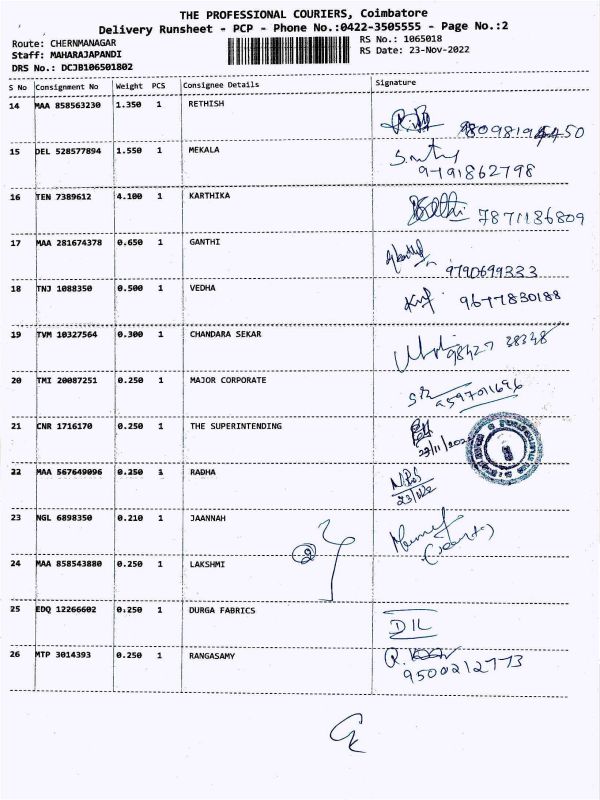 THE PROFESSIONAL COURIERS, Coimbatore
Delivery Runsheet - PCP - Phone No.:0422-3505555 - Page No.:2
Route: CHERNMANAGAR
RS No.: 1065018
Staff: MAHARAJAPANDI
RS Date: 23-Nov-2022
DRS No.: DCJB106501802
S No Consignment No Weight PCS Consignee Details Signature
14 MAA 858563230 1.350 1 RETHISH
15 DEL 528577894 1.550 1 MEKALA
9791862798
16 TEN 7389612 4.100 1 KARTHIKA
7871186809
17 MAA 281674378 0.650 1 GANTHI
9790699333
18 TNJ 1088350 0.500 1 VEDHA
9677830188
19 TVM 10327564 0.300 1 CHANDARA SEKAR
98427 38348
20 TMI 20087251 0.250 1 MAJOR CORPORATE
9597011696
21 CNR 1716170 0.250 1 THE SUPERINTENDING
23/11/2022
22 MAA 567649096 0.250 1 RADHA
23 NGL 6898350 0.210 1 JAANNAH
24 MAA 858543880 0.250 1 LAKSHMI
25 EDQ 12266602 0.250 1 DURGA FABRICS
DIL
26 MTP 3014393 0.250 1 RANGASAMY
9500212773